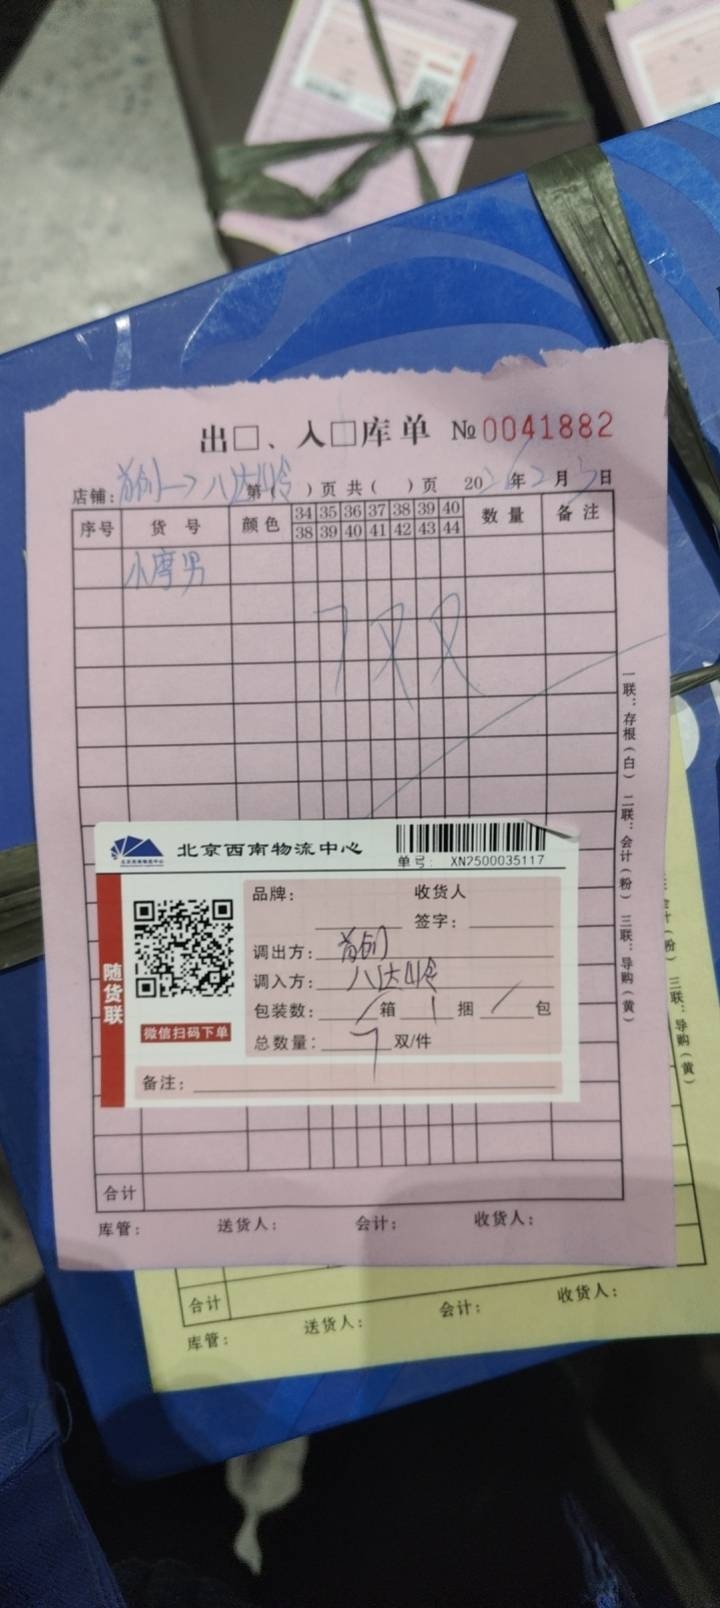 出□、入□库单 №0041882
店铺：首创→八达岭 第（ ）页 共（ ）页 2026年2月3日
序号 货号 颜色 34 35 36 37 38 39 40 数量 备注
38 39 40 41 42 43 44
小摩男
7双
一联：存根（白） 二联：会计（粉） 三联：导购（黄）
北京西南物流中心
单号： XN2500035117
随货联
微信扫码下单
品牌： 收货人
签字：
调出方：首创
调入方：八达岭
包装数：/箱 1捆 /包
总数量：7双/件
备注：
合计
库管： 送货人： 会计： 收货人：
三联：导购（黄）
合计
库管： 送货人： 会计： 收货人：